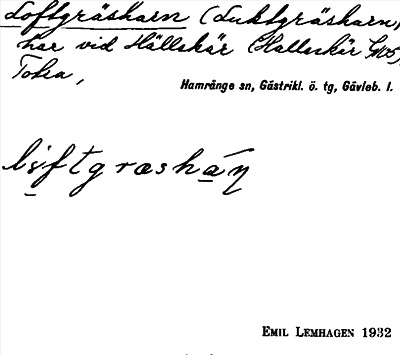 Loftgräsharn (Luktgräsharn)
har vid Hällskär (Halleskär GMS),
Tolsa,
Hamrånge sn, Gästrikl. ö. tg, Gävleb. l.
löftgrasháη
EMIL LEMHAGEN 1932